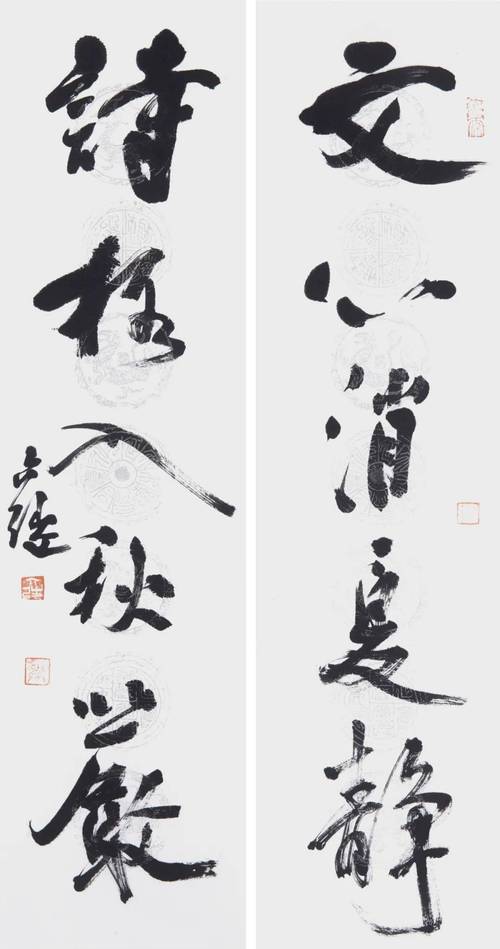 文心消夏静
詩格入秋嚴